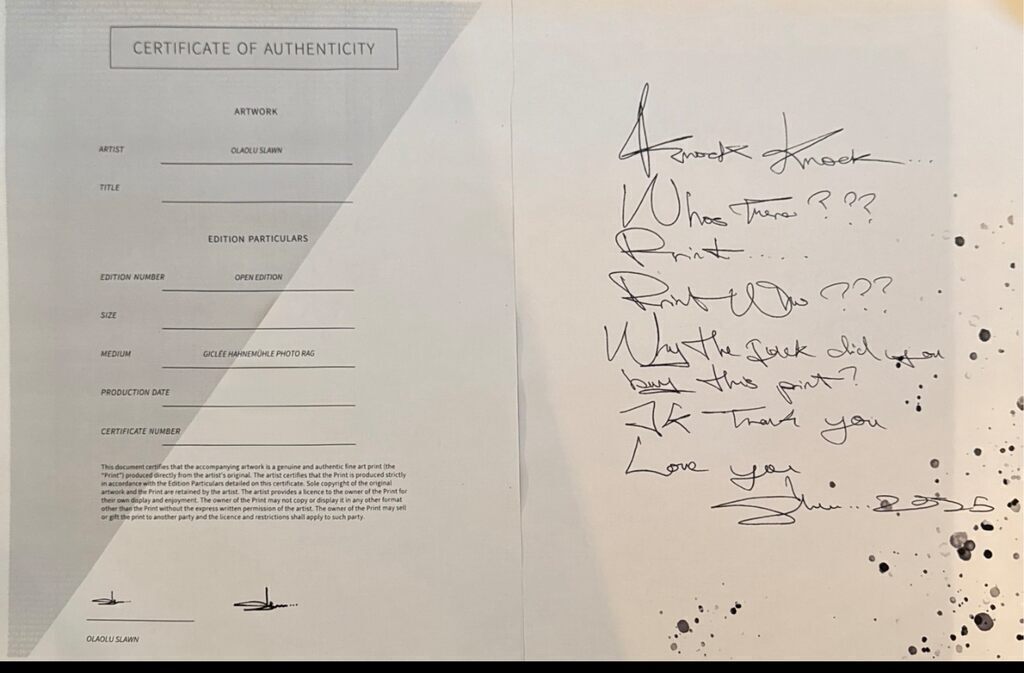 CERTIFICATE OF AUTHENTICITY
ARTWORK
ARTIST OLAOLU SLAWN
TITLE
EDITION PARTICULARS
EDITION NUMBER OPEN EDITION
SIZE
MEDIUM GICLÉE HAHNEMÜHLE PHOTO RAG
PRODUCTION DATE
CERTIFICATE NUMBER
This document certifies that the accompanying artwork is a genuine and authentic fine art print (the
"Print") produced directly from the artist's original. The artist certifies that the Print is produced strictly
in accordance with the Edition Particulars detailed on this certificate. Sole copyright of the original
artwork and the Print are retained by the artist. The artist provides a licence to the owner of the Print for
their own display and enjoyment. The owner of the Print may not copy or display it in any other format
other than the Print without the express written permission of the artist. The owner of the Print may sell
or gift the print to another party and the licence and restrictions shall apply to such party.
OLAOLU SLAWN
Knock Knock...
Whos There???
Print.....
Print Who???
Why the fuck did you
buy this print?
JK Thank you
Love you
2025